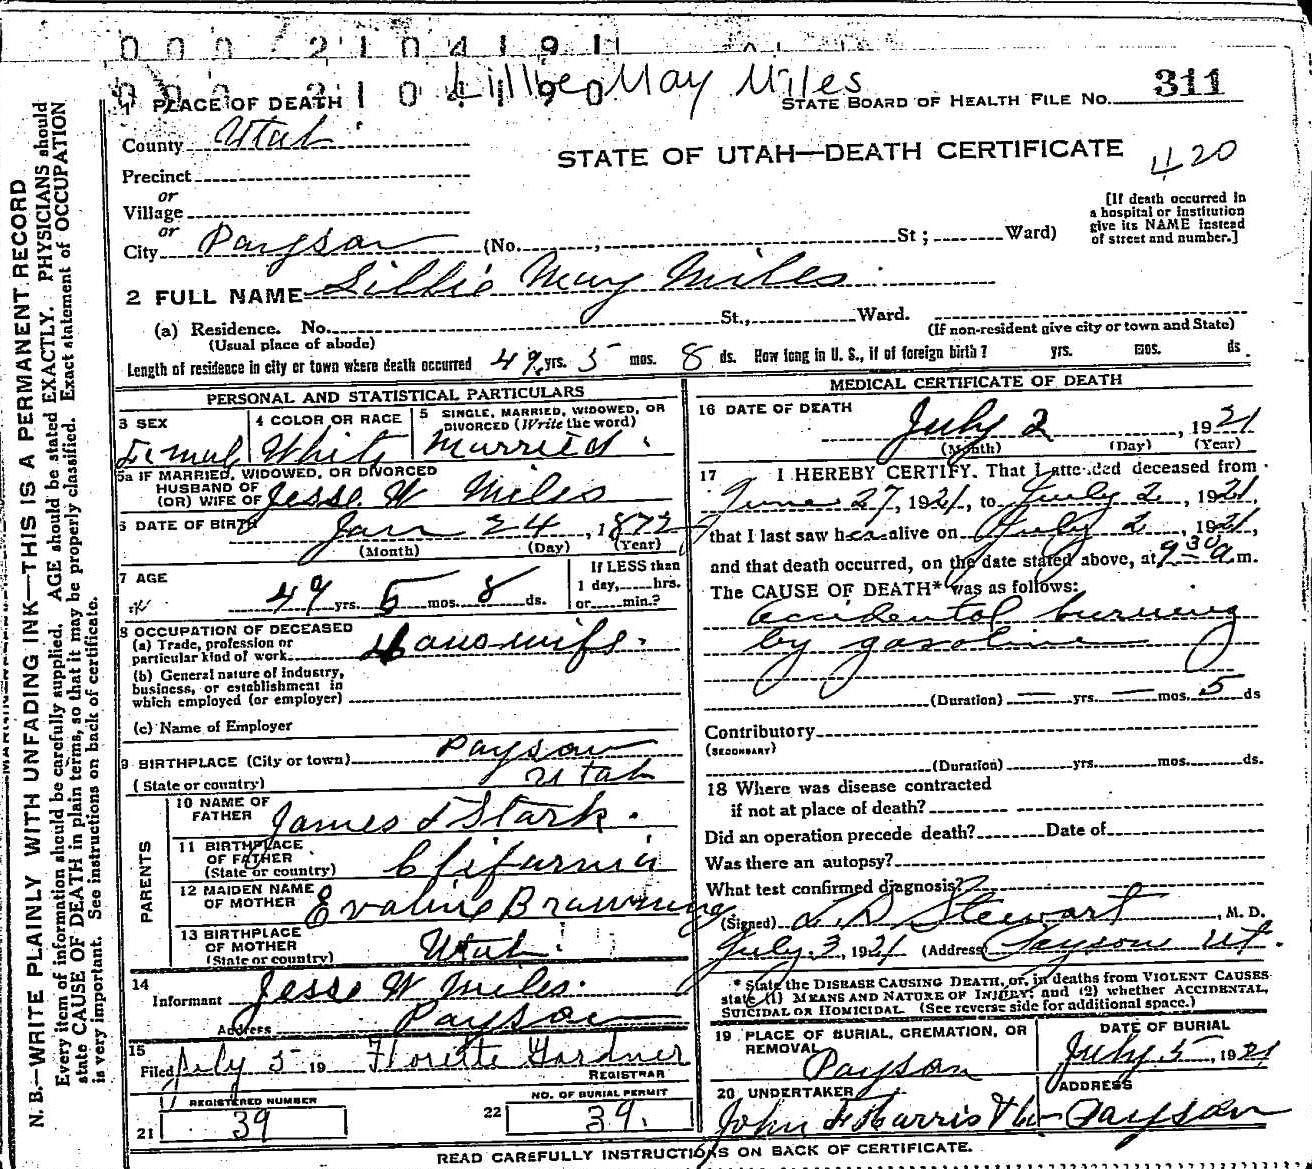 000 2104191
000 2104190
Lillie May Miles
1 PLACE OF DEATH
STATE BOARD OF HEALTH FILE NO. 311
County Utah
STATE OF UTAH—DEATH CERTIFICATE 420
Precinct
or
Village
or
City Payson (No. , St; Ward)
[If death occurred in
a hospital or institution
give its NAME instead
of street and number.]
2 FULL NAME Lillie May Miles
(a) Residence. No. St., Ward.
(Usual place of abode)
(If non-resident give city or town and State)
Length of residence in city or town where death occurred 49 yrs. 5 mos. 8 ds. How long in U. S., if of foreign birth? yrs. mos. ds.
PERSONAL AND STATISTICAL PARTICULARS
3 SEX
Femal
4 COLOR OR RACE
White
5 SINGLE, MARRIED, WIDOWED, OR
DIVORCED (Write the word)
Married.
5a IF MARRIED, WIDOWED, OR DIVORCED
HUSBAND OF
(OR) WIFE OF Jesse W Miles
6 DATE OF BIRTH Jan 24, 1872
(Month) (Day) (Year)
7 AGE
49 yrs. 5 mos. 8 ds.
If LESS than
1 day, hrs.
or min.?
8 OCCUPATION OF DECEASED
(a) Trade, profession or
particular kind of work Houswife.
(b) General nature of industry,
business, or establishment in
which employed (or employer)
(c) Name of Employer
9 BIRTHPLACE (City or town) Payson
(State or country) Utah
PARENTS
10 NAME OF
FATHER James F Stark.
11 BIRTHPLACE
OF FATHER
(State or country) Clifornia
12 MAIDEN NAME
OF MOTHER Evaline Browning
13 BIRTHPLACE
OF MOTHER
(State or country) Utah
14
Informant Jesse W Miles.
Address Payson
15
Filed July 5 19 Florette Gardner
REGISTRAR
REGISTERED NUMBER
21 39
NO. OF BURIAL PERMIT
22 39.
MEDICAL CERTIFICATE OF DEATH
16 DATE OF DEATH
July 2, 1921
(Month) (Day) (Year)
17 I HEREBY CERTIFY. That I attended deceased from
June 27, 1921, to July 2, 1921,
that I last saw her alive on July 2, 1921,
and that death occurred, on the date stated above, at 9 30 a m.
The CAUSE OF DEATH* was as follows:
Accidental burning
by gasoline
(Duration) — yrs. — mos. 5 ds
Contributory
(SECONDARY)
(Duration) yrs. mos. ds.
18 Where was disease contracted
if not at place of death?
Did an operation precede death? Date of
Was there an autopsy?
What test confirmed diagnosis?
(Signed) L D Stewart, M. D.
July 3, 1921 (Address Payson Ut.
* State the DISEASE CAUSING DEATH, or, in deaths from VIOLENT CAUSES
state (1) MEANS AND NATURE OF INJURY; and (2) whether ACCIDENTAL,
SUICIDAL OR HOMICIDAL. (See reverse side for additional space.)
19 PLACE OF BURIAL, CREMATION, OR
REMOVAL
Payson
DATE OF BURIAL
July 5, 1921
20 UNDERTAKER
John F Harris & Co
ADDRESS
Payson
READ CAREFULLY INSTRUCTIONS ON BACK OF CERTIFICATE.
N. B.—WRITE PLAINLY WITH UNFADING INK—THIS IS A PERMANENT RECORD
Every item of information should be carefully supplied. AGE should be stated EXACTLY. PHYSICIANS should
state CAUSE OF DEATH in plain terms, so that it may be properly classified. Exact statement of OCCUPATION
is very important. See instructions on back of certificate.